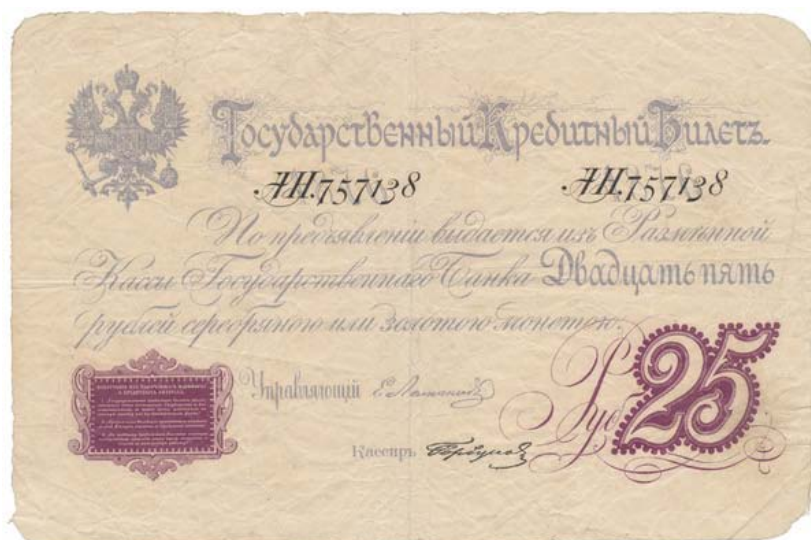 Государственный Кредитный Билетъ.
АН.757138 АН.757138
По предъявленіи выдается изъ Размѣнной
Кассы Государственнаго Банка Двадцать пять
рублей серебряною или золотою монетою.
Управляющій Е. Ламанскій
Кассиръ
25 Руб